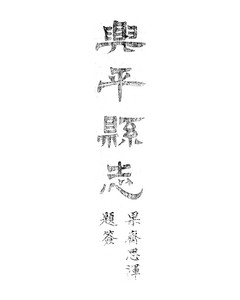 興平縣志
果齋思渾
題簽